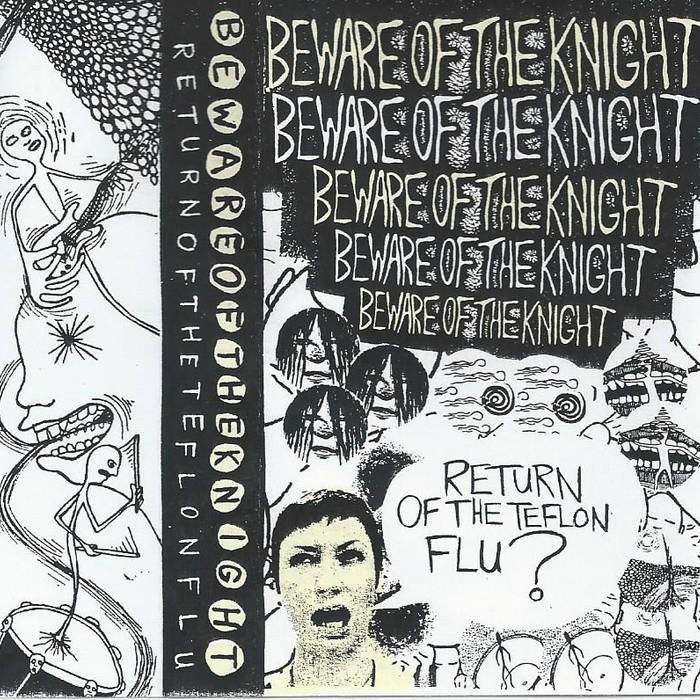 BEWAREOFTHEKNIGHT
RETURNOFTHETEFLONFLU
BEWARE OF THE KNIGHT
BEWARE OF THE KNIGHT
BEWARE OF THE KNIGHT
BEWARE OF THE KNIGHT
BEWARE OF THE KNIGHT
RETURN
OF THE TEFLON
FLU?